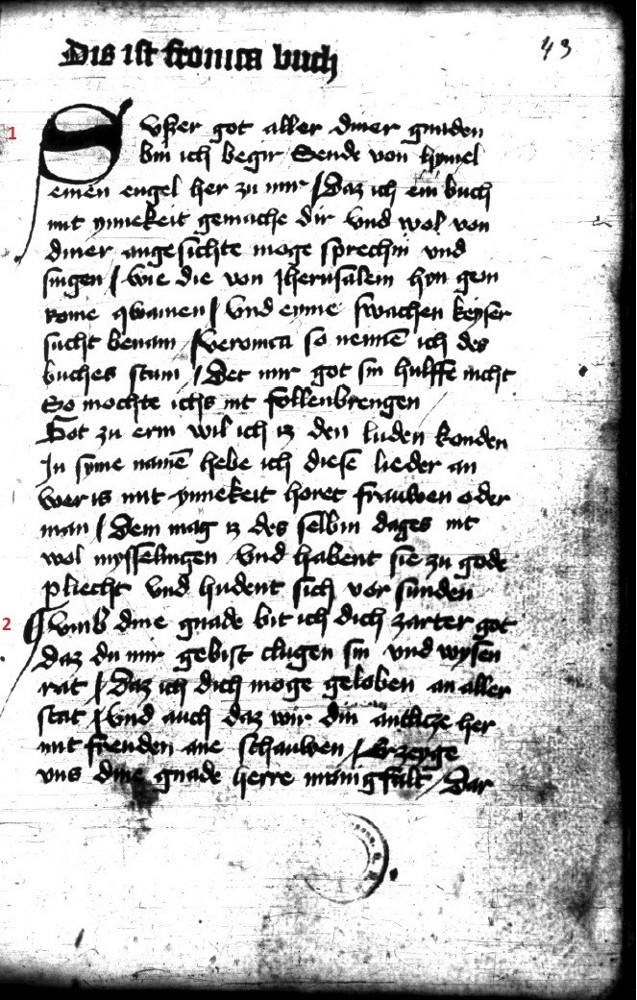 Dis ist fronica buch
43
1
Susser got aller diner gnaden
bin ich begir Sende von hymel
einen engel her zu mir / Daz ich ein buch
mit ynnekeit gemache dir vnd wol von
diner angesichte moge sprechin vnd
singen / wie die von Jherusalem hyn gein
rome qwamen / vnd eyme swachen keyser
sucht benam / veronica so nennē ich des
buches stam / Det mir got sin hulffe nicht
So mochte ichs nit follenbrengen
Got zu erin wil ich iz den luden konden
In syme namē hebe ich diese lieder an
wer is mit ynnekeit horet frauwen oder
man / Dem mag iz des selbin dages nit
wol mysselingen vnd habent sie zu gode
pliecht vnd hudent sich vor sunden
2
vmb dine gnade bit ich dich zarter got
daz du mir gebist clugen sin vnd wysen
rat / Daz ich dich moge geloben an aller
stat / vnd auch daz wir din antlicze her
mit freuden ane schauwen / Erzeyge
vns dine gnade herre manigfalt / Dar